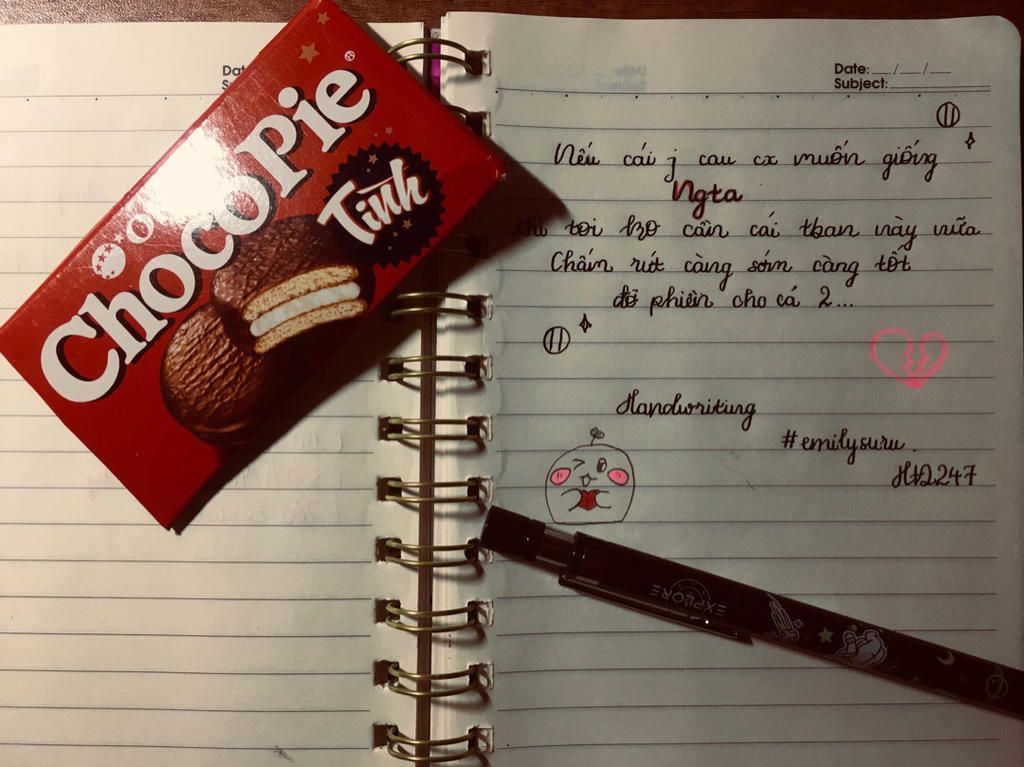 ChocoPie
Tình
Dat
S
Date: __/__/__
Subject:
Nếu cái j cau cx muốn giống
Ngta
thì toi ko cần cái than này nữa
Chấm rứt càng sớm càng tốt
đỡ phiền cho cả 2...
Handwriting
#emilysuru.
EXPLORE